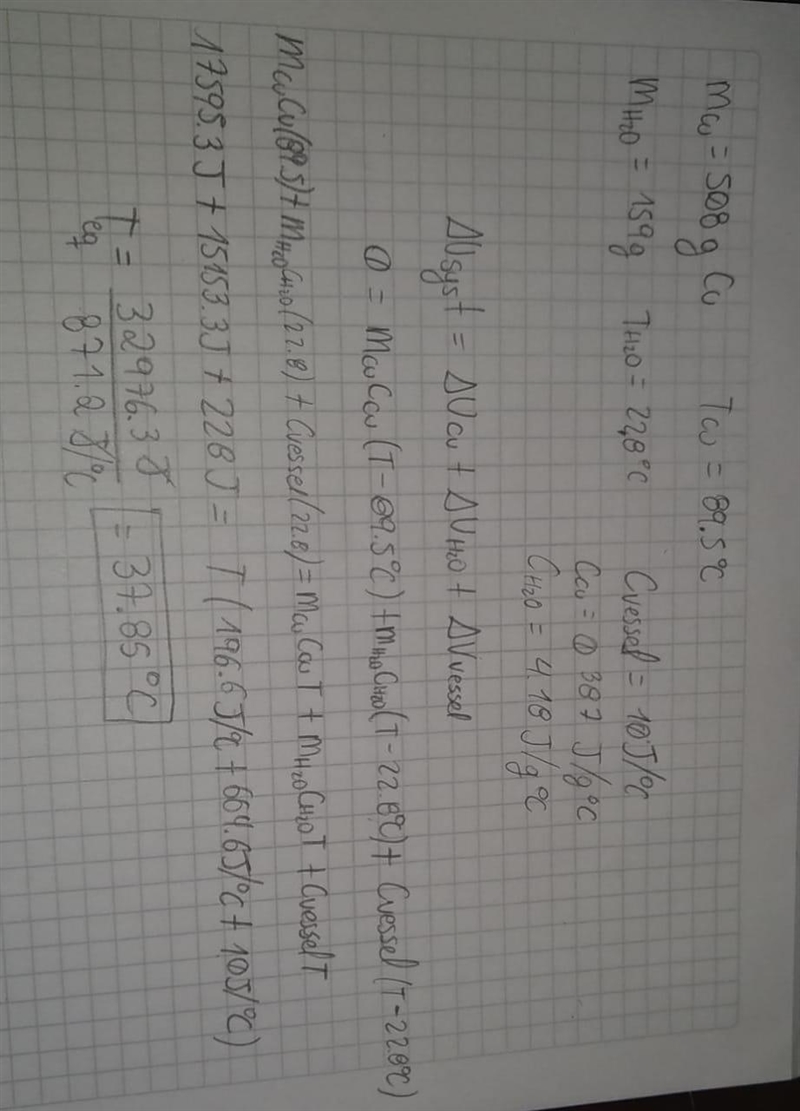 mCu = 508 g Cu TCu = 89.5°C Cvessel = 10J/°C
mH2O = 159g TH2O = 22,8°C CCu = 0.387 J/g°C
CH2O = 4.18J/g°C
ΔUsyst = ΔUCu + ΔUH2O + ΔUvessel
0 = mCuCCu(T-89.5°C)+mH2OCH2O(T-22.8°C)+Cvessel(T-22.8°C)
mCuCu(89.5)+mH2OCH2O(22.8)+Cvessel(22.8)=mCuCCuT+mH2OCH2OT+CvesselT
17595.3J+15153.3J+228J=T(196.6J/°C+664.6J/°C+10J/°C)
Teq = 32976.3J / 871.2 J/°C = 37.85°C